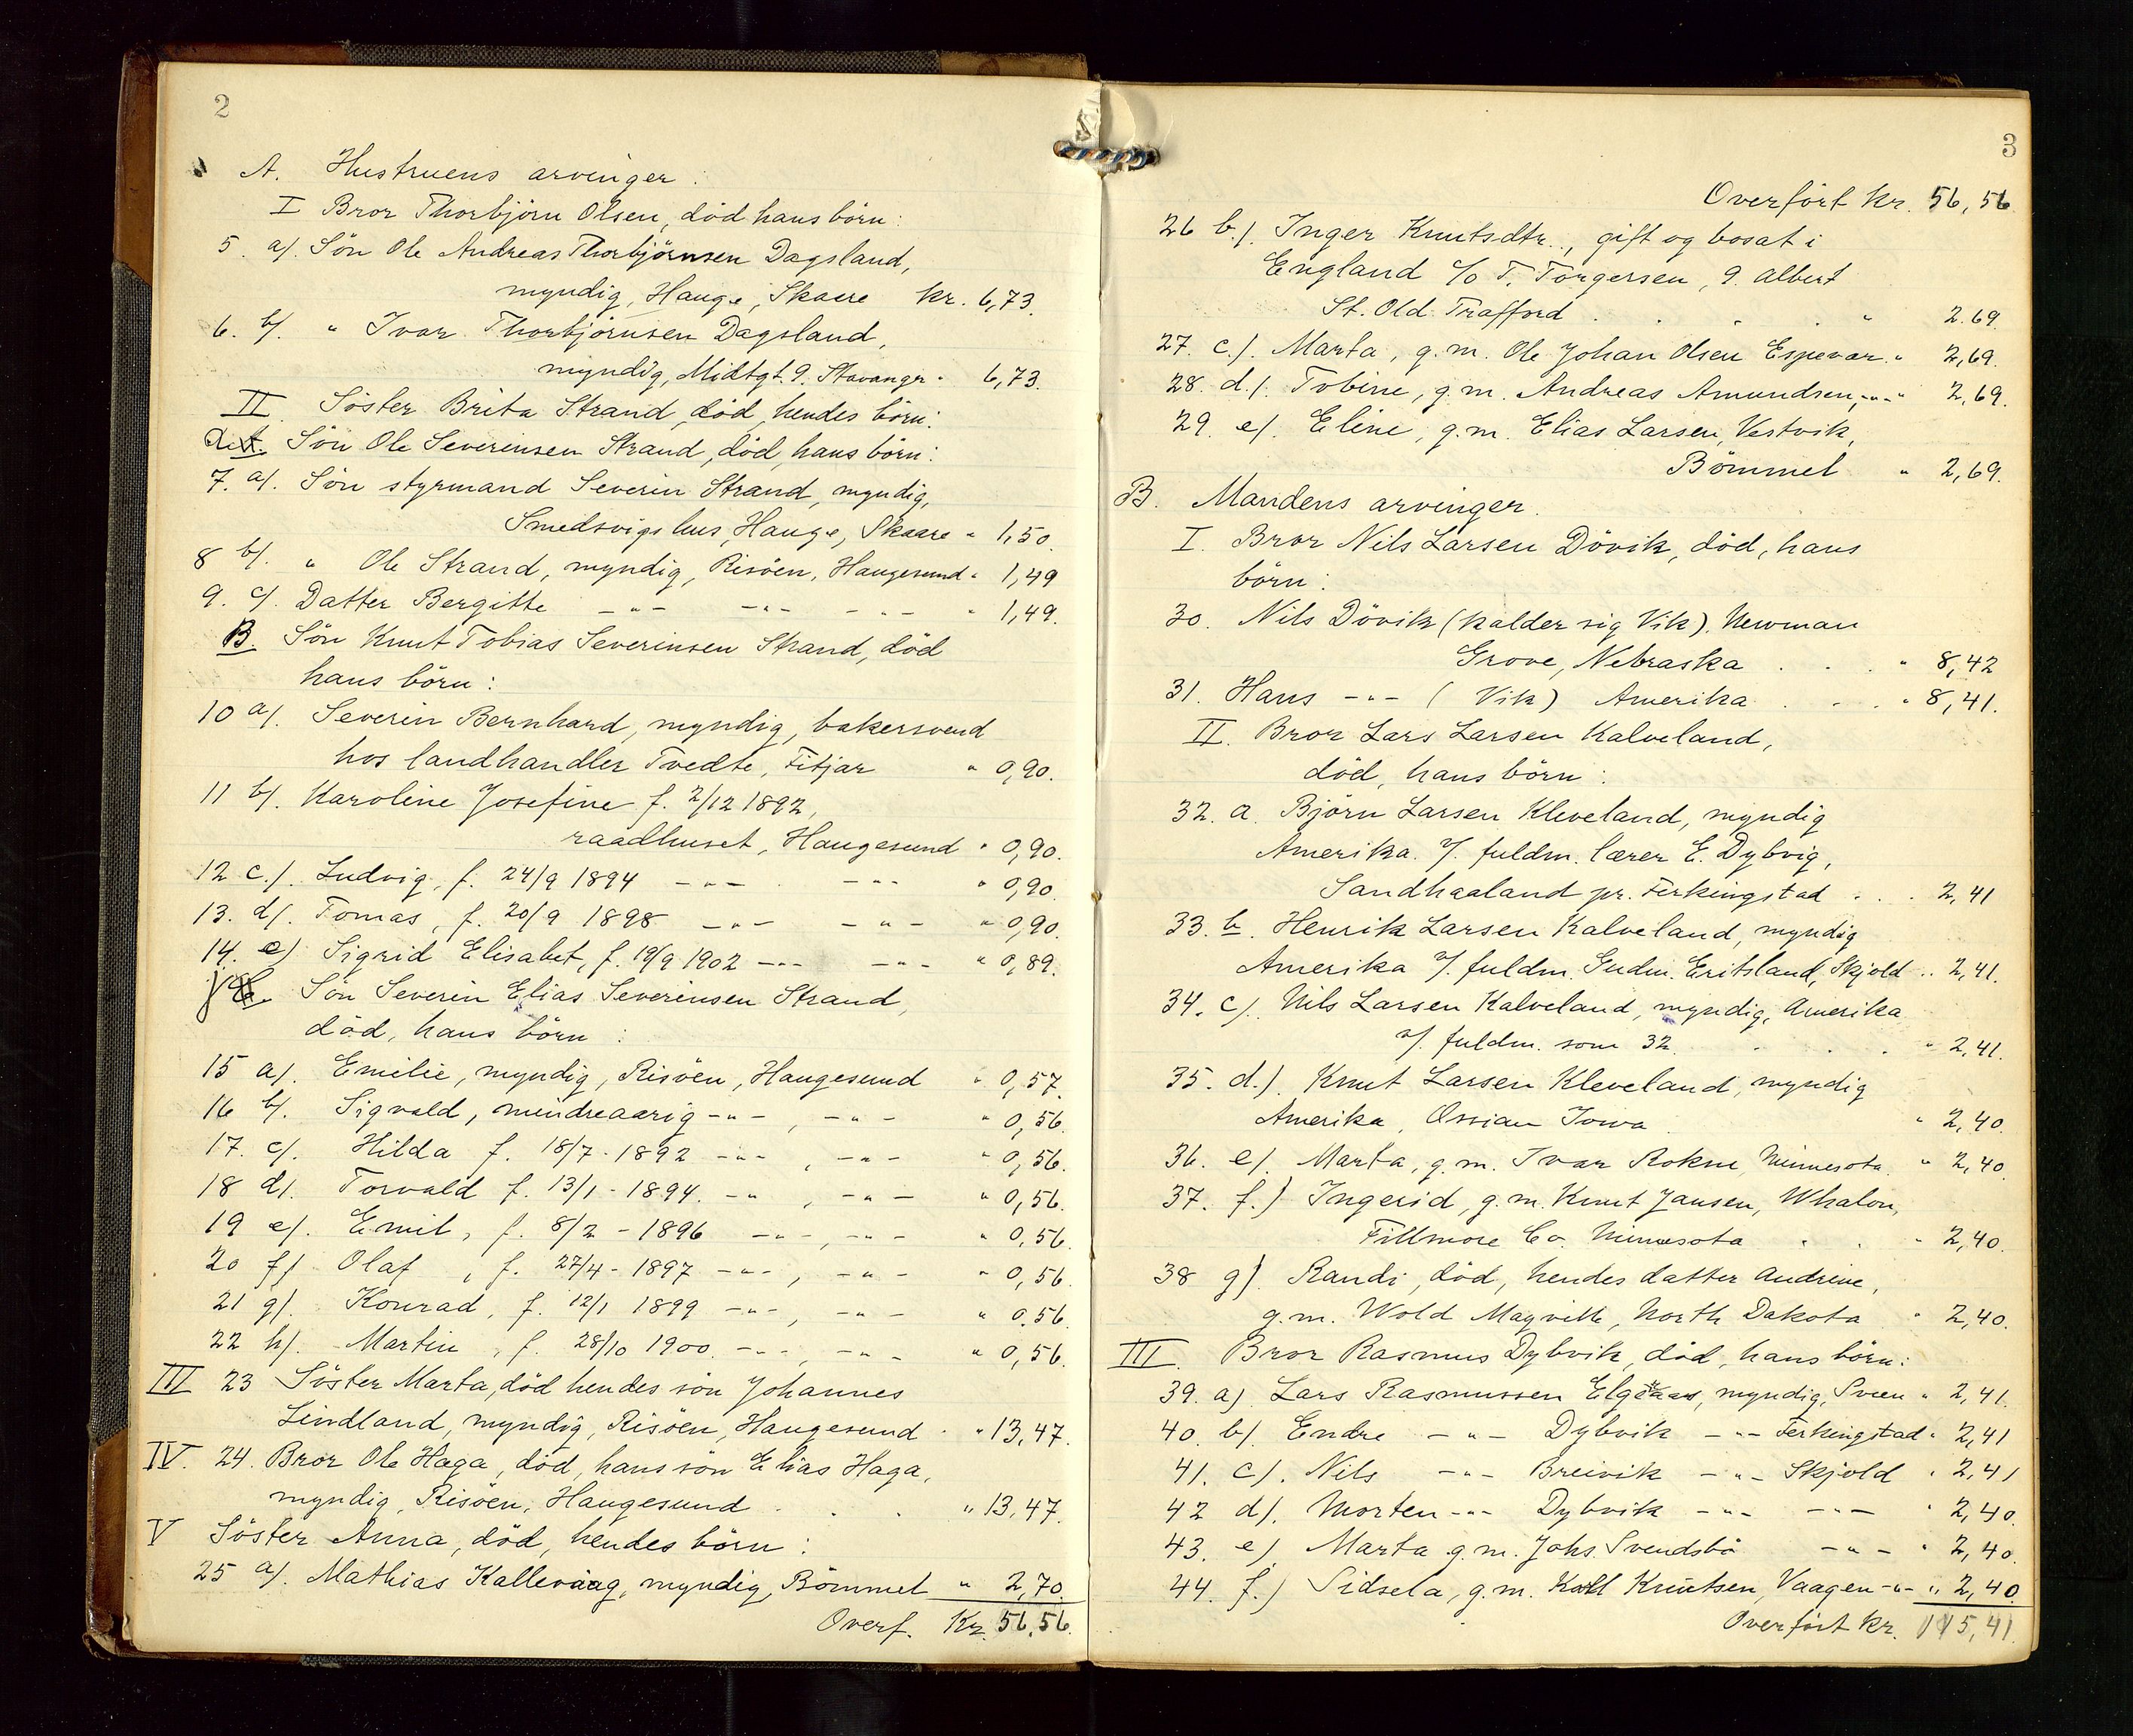 2
A. Hustruens arvinger:
I Bror Thorbjörn Olsen, död hans börn:
5. a/. Sön Ole Andreas Thorbjörnsen Dagsland,
myndig, Hauge, Skaare kr. 6,73.
6. b/. " Ivar Thorbjörnsen Dagsland,
myndig, Midtgt. 9. Stavanger " 6,73.
II Söster Brita Strand, död, hendes börn:
Sön Ole Severinsen Strand, död, hans börn:
7. a/. Sön styrmand Severin Strand, myndig,
Smedsvigs hus, Hauge, Skaare " 1,50.
8 b/. " Ole Strand, myndig, Risöen, Haugesund " 1,49
9. c/. Datter Bergitte -"- -"- -"- " 1,49.
B. Sön Knut Tobias Severinsen Strand, död
hans börn:
10 a/. Severin Bernhard, myndig, bakersvend
hos landhandler Tvedte, Fitjar " 0,90.
11 b/. Karoline Josefine f. 2/12 1892,
raadhuset, Haugesund " 0,90.
12 c./. Ludvig, f. 24/9 1894 -"- -"- " 0,90.
13. d/. Tomas, f. 20/9 1898 -"- -"- " 0,90.
14. e) Sigrid Elisabet, f. 19/9 1902 -"- -"- " 0,89.
Sön Severin Elias Severinsen Strand,
död, hans börn:
15 a/. Emilie, myndig, Risöen, Haugesund " 0,57.
16 b/. Sigvald, mindreaarig -"-, -"- " 0,56.
17. c/. Hilda f. 18/7 - 1892 -"-, -"- " 0,56.
18 d/. Torvald f. 13/1 - 1894. -"-, -"- " 0,56.
19 e/. Emil, f. 8/2 - 1896 -"-, -"- " 0,56.
20 f/ Olaf, f. 27/4 - 1897 -"-, -"- " 0,56.
21 g/. Konrad, f. 12/1 1899 -"-, -"- " 0,56.
22 h/. Martin, f. 28/10 1900. -"-, -"- " 0,56.
III 23 Söster Marta, död hendes sön Johannes
Lindland, myndig, Risöen, Haugesund . " 13,47.
IV. 24. Bror Ole Haga, död, hans sön Elias Haga,
myndig, Risöen, Haugesund . . . " 13,47.
V Söster Anna, död, hendes börn:
25 a/. Mathias Kallevaag, myndig, Bömmel " 2,70.
Overf. Kr. 56,56.
3
Overfört kr. 56,56
26 b./. Inger Knutsdtr., gift og bosat i
England c/o T. Torgersen, 9. Albert
St. Old Trafford . . . " 2.69.
27. c./. Marta, g.m. Ole Johan Olsen Espevær. " 2,69.
28. d./. Tobine, g.m. Andreas Amundsen, -"- " 2,69.
29. e/. Eline, g.m. Elias Larsen, Vestvik,
Bömmel " 2,69.
B. Mandens arvinger.
I. Bror Nils Larsen Dövik, död, hans
börn:
30. Nils Dövik (kalder sig Vik). Newman
Grove, Nebraska . . . " 8,42
31. Hans -"- (Vik) Amerika . . . " 8,41.
II. Bror Lars Larsen Kalveland,
död, hans börn:
32. a. Björn Larsen Kleveland, myndig
Amerika. v/. fuldm. lærer E. Dybvig,
Sandhaaland pr. Ferkingstad . . . 2,41
33. b. Henrik Larsen Kalveland, myndig
Amerika v/. fuldm. Gudm. Eritsland, Skjold .. 2,41.
34. c/. Nils Larsen Kalveland, myndig, Amerika
v/. fuldm. som 32. . . . " 2,41.
35. d.). Knut Larsen Kleveland, myndig
Amerika, Ossian Iowa . " 2,40.
36. e/. Marta, g.m. Ivar Rokne, Minnesota. " 2,40.
37. f.) Ingerid, g.m. Knut Jansen, Whalon,
Fillmore Co. Minnesota . . " 2,40.
38 g). Randi, död, hendes datter Andrine,
g.m. Wold Mayville, North Dakota " 2,40.
III. Bror Rasmus Dybvik, död, hans börn:
39. a). Lars Rasmussen Elgeaas, myndig, Sveen " 2,41.
40. b/. Endre -"- Dybvik -"- Ferkingstad " 2,41
41. c/. Nils -"- Breivik -"- Skjold " 2,41
42 d/. Morten -"- Dybvik -"- -"- " 2,40.
43. e). Marta g.m. Johs. Svendsbö -"- " 2,40.
44. f.) Sidsela, g.m. Knutsen, Vaagen -"- " 2,40.
Overfört kr. 115,41.